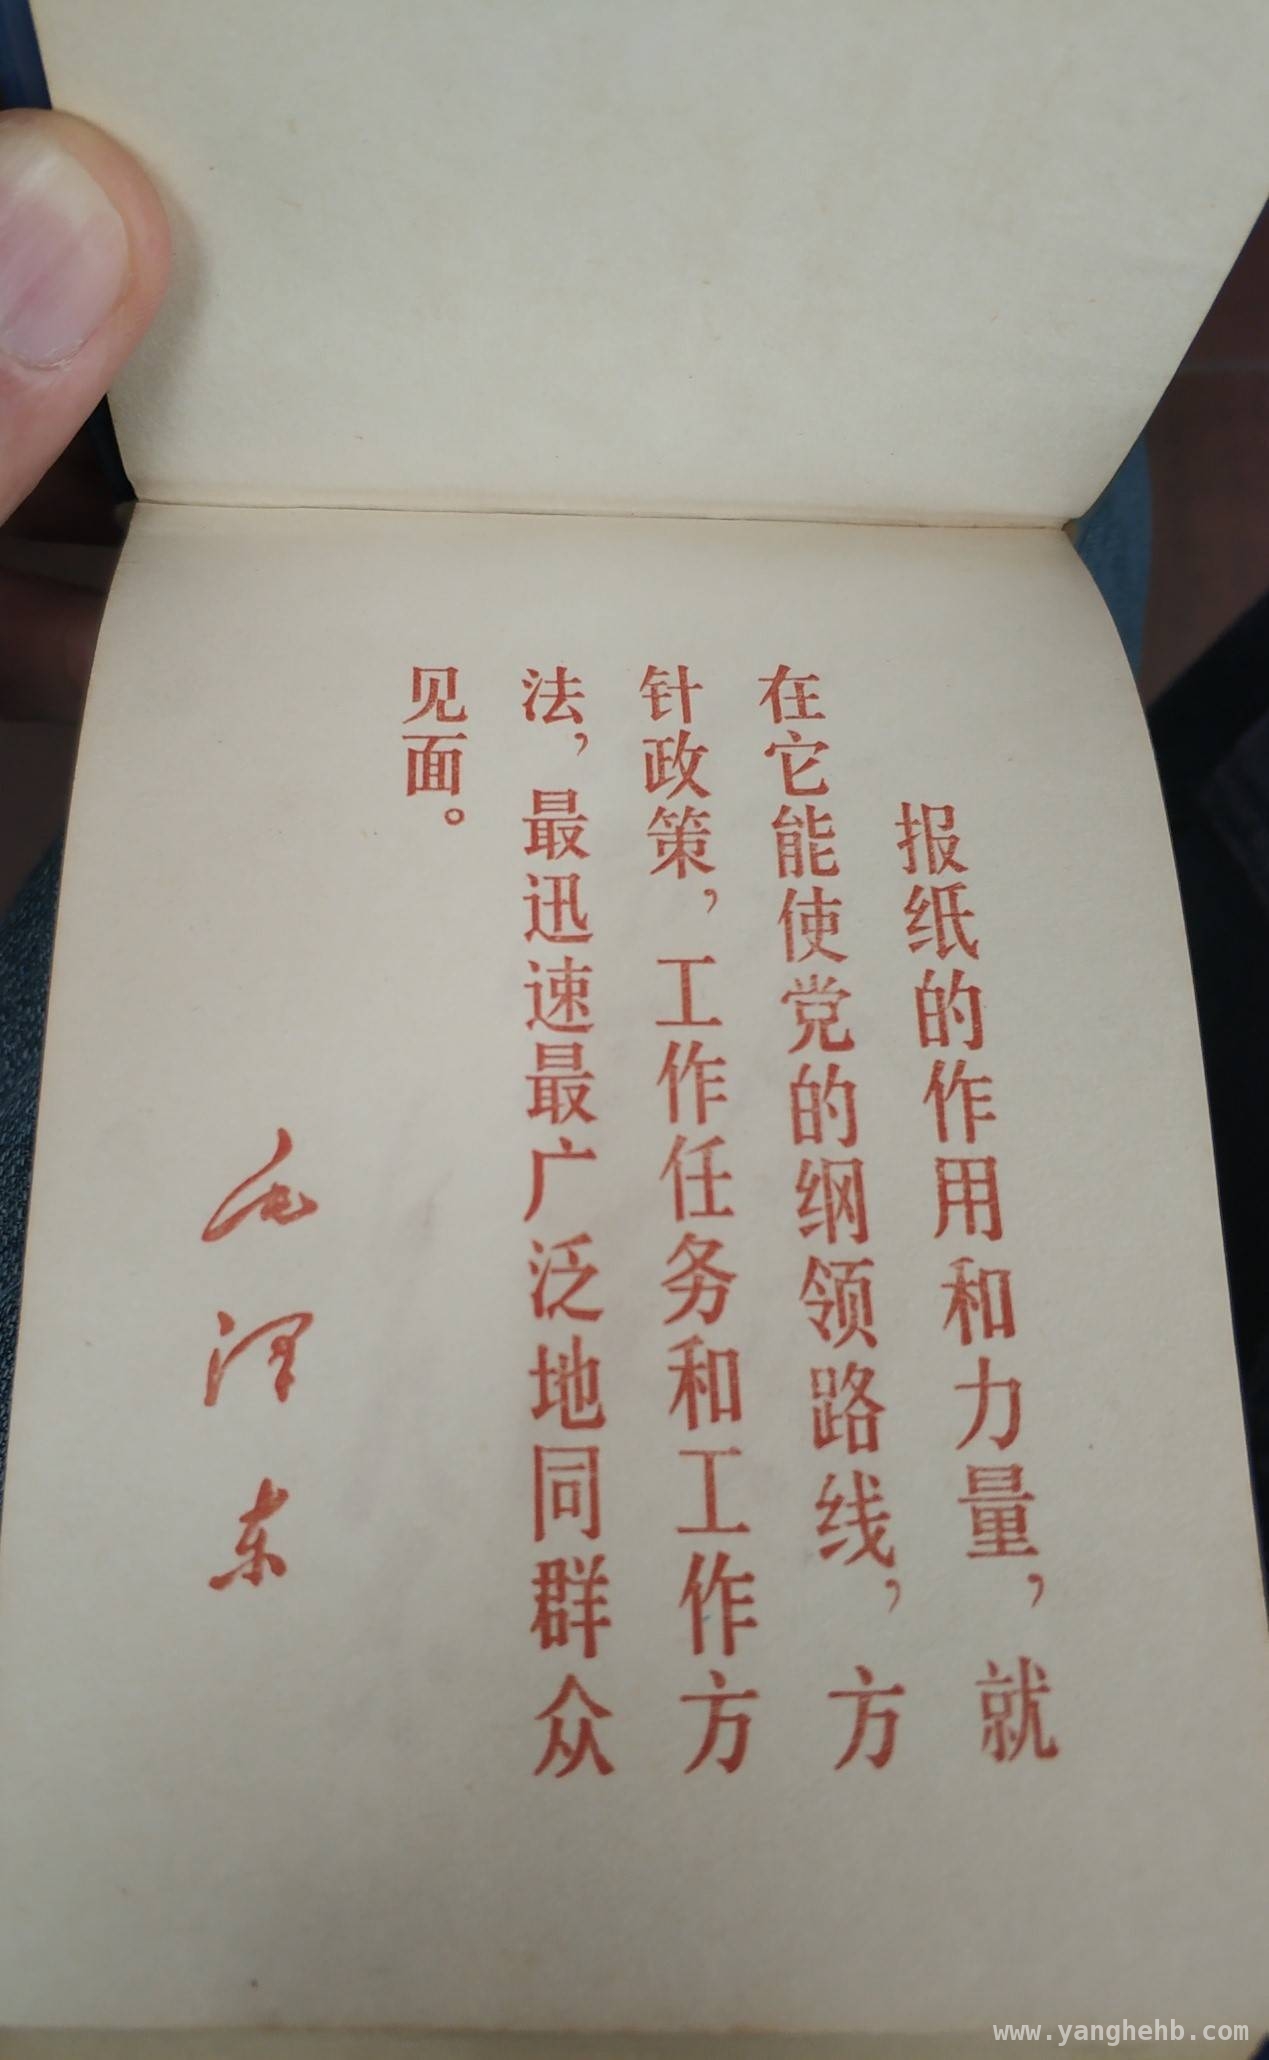 报纸的作用和力量，就
在它能使党的纲领路线，方
针政策，工作任务和工作方
法，最迅速最广泛地同群众
见面。
毛泽东
www.yanghehb.com